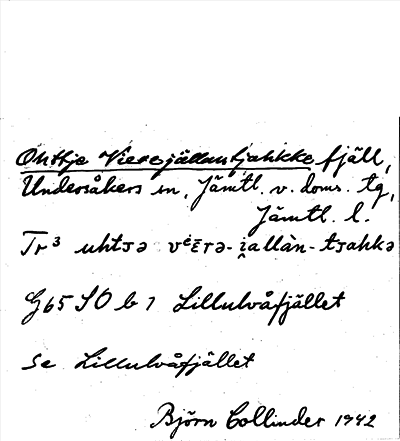 Ohttje Vierejällantjahkke fjäll,
Undersåkers sn, Jämtl. v. doms. tg,
Jämtl. l.
Tr³ uhtsə vᵉɛ̄rə-i̯allàn-tsahkə
G65 SO b 1 Lillulvåfjället
Se Lillulvåfjället
Björn Collinder 1942